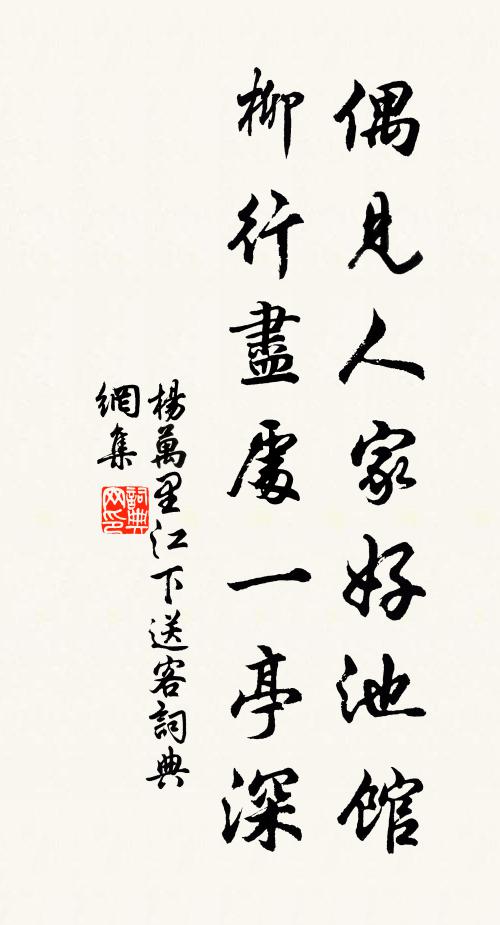 偶見人家好池館
柳行盡處一亭深
楊萬里江下送客詞典
網集
詞典
网印